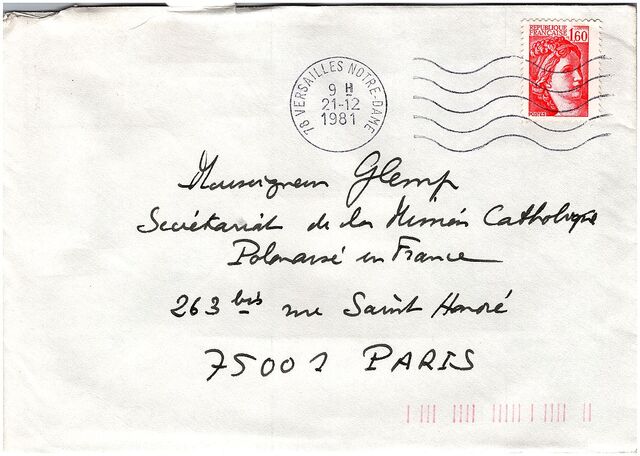 REPUBLIQUE
FRANCAISE 1,60
POSTES
78 VERSAILLES NOTRE-DAME
9 H
21-12
1981
Monseigneur Glemp
Secrétariat de la Mission Catholique
Polonaise en France
263 bis rue Saint Honoré
75001 PARIS